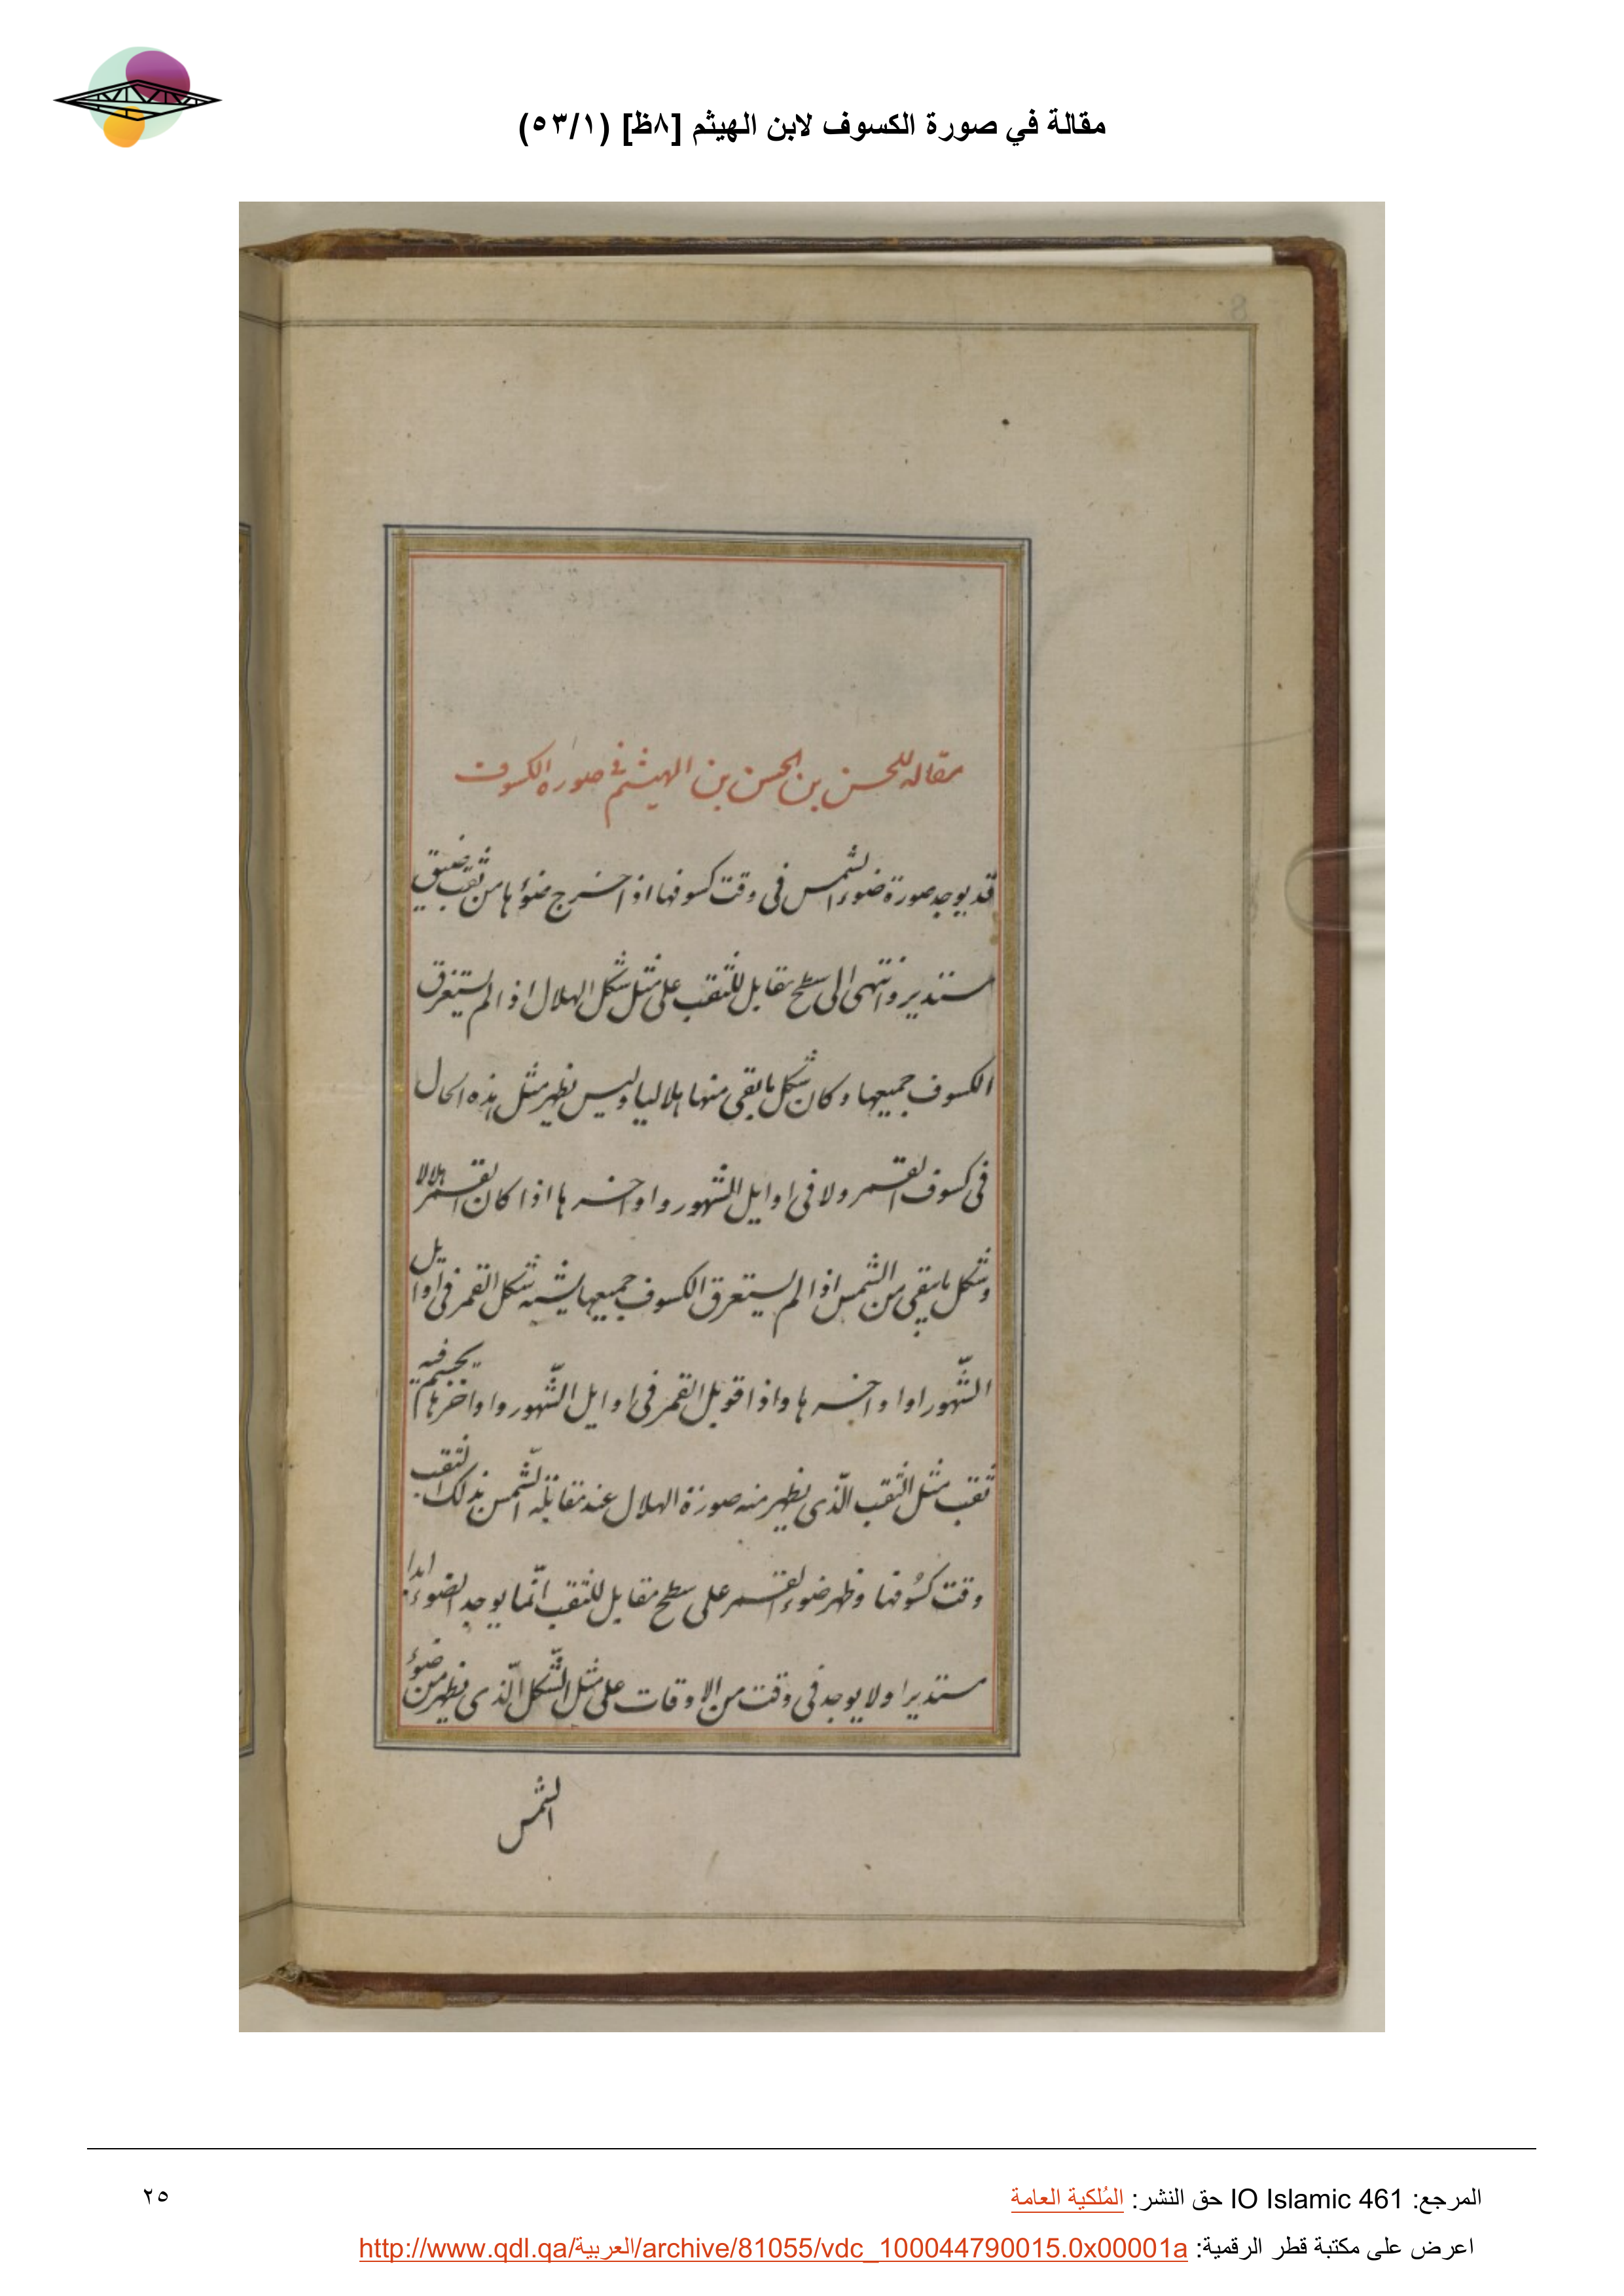 مقالة في صورة الكسوف لابن الهيثم [٨ظ] (٥٣/١)
8
مقاله للحسن بن الحسن بن الهيثم في صورة الكسوف
قد يوجد صورة ضوء الشمس فى وقت كسوفها اذا خرج ضوؤها من ثقب ضيق
مستدير وانتهى الى سطح مقابل للثقب على مثل شكل الهلال اذا لم يستغرق
الكسوف جميعها وكان شكل ما بقى منها هلاليا وليس يظهر مثل هذه الحال
فى كسوف القمر ولا فى اوايل الشهور واواخرها اذا كان القمر هلالا
وشكل ما يبقى من الشمس اذا لم يستغرق الكسوف جميعها يشبه شكل القمر فى اوايل
الشّهور او اواخرها واذا قوبل القمر فى اوايل الشّهور واواخرها
ثقب مثل الثقب الّذى يظهر منه صورة الهلال عند مقابلة الشّمس بذلك الثقب
وقت كسُوفها وظهر ضوء القمر على سطح مقابل للثقب انّما يوجد الضوء ابدا
مستديرا ولا يوجد فى وقت من الاوقات على مثل الشّكل الّذى يظهر من ضوء
الشمس
المرجع: IO Islamic 461 حق النشر: المُلكية العامة
٢٥
اعرض على مكتبة قطر الرقمية: http://www.qdl.qa/العربية/archive/81055/vdc_100044790015.0x00001a